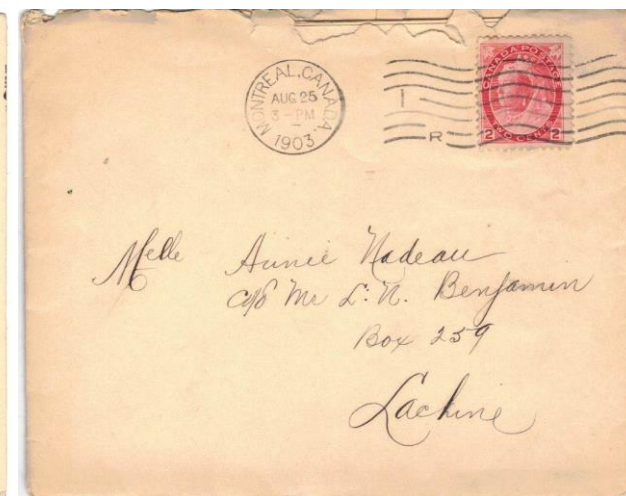 MONTREAL, CANADA.
AUG 25
3 - PM
1903
I
R
CANADA POSTAGE
2 TWO CENTS 2
Melle Annie Nadeau
c/o Mr L. N. Benjamin
Box 259
Lachine